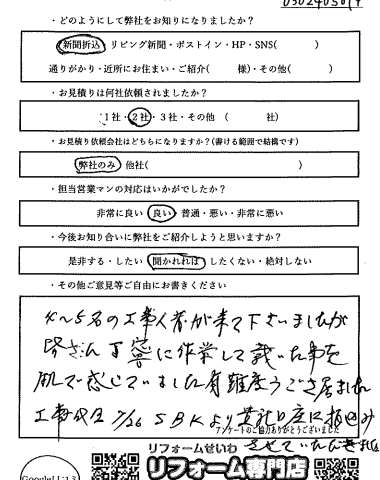 ・どのようにして弊社をお知りになりましたか？
新聞折込 リビング新聞・ポストイン・HP・SNS( )
通りがかり・近所にお住まい・ご紹介( 様)・その他( )
・お見積りは何社依頼されましたか？
1社・2社・3社・その他 ( 社)
・お見積り依頼会社はどちらになりますか？(書ける範囲で結構です)
弊社のみ 他社( )
・担当営業マンの対応はいかがでしたか？
非常に良い 良い 普通・悪い・非常に悪い
・今後お知り合いに弊社をご紹介しようと思いますか？
是非する・したい 聞かれれば したくない・絶対しない
・その他ご意見等ご自由にお書きください
4〜5名の工事人者が来て下さいましたが
皆さん丁寧に作業して戴いた事を
肌で感じていました有難うござ居ました
工事代金 7/26 SBKより貴社口座に振込み
アンケートのご協力ありがとうございました
させていただきました
リフォームせいわ
リフォーム専門店